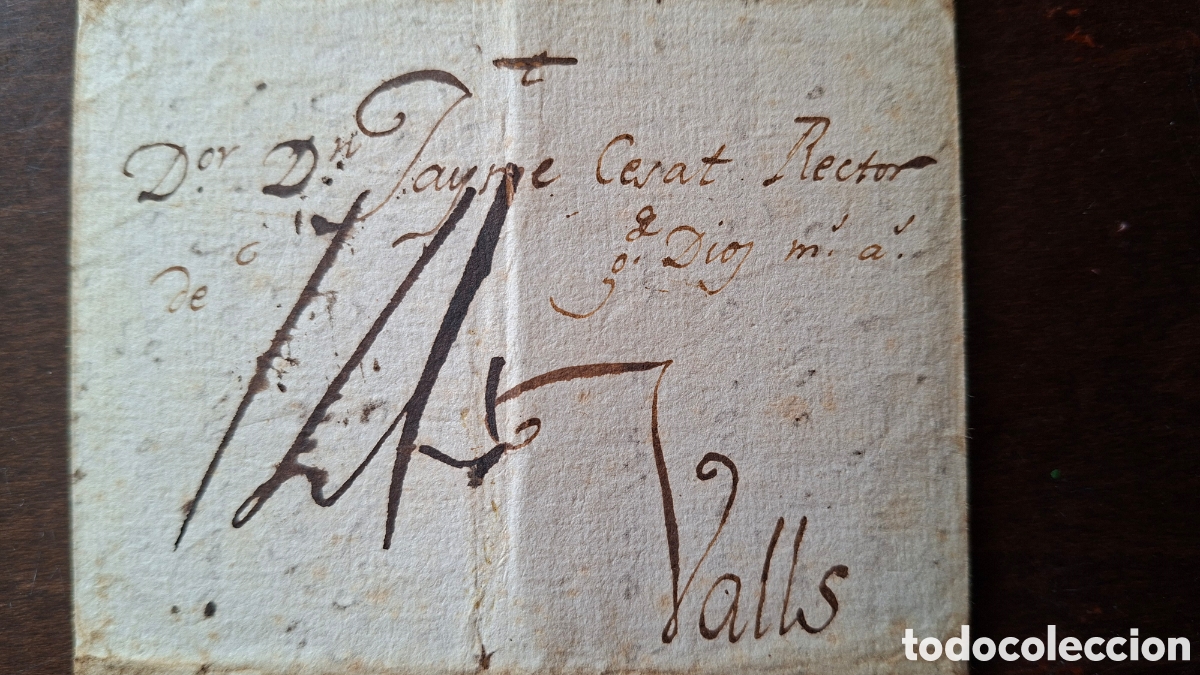 t
Dor. Dn. Jayme Cesat Rector
de
q. g. Dios ms. as.
Valls
todocoleccion